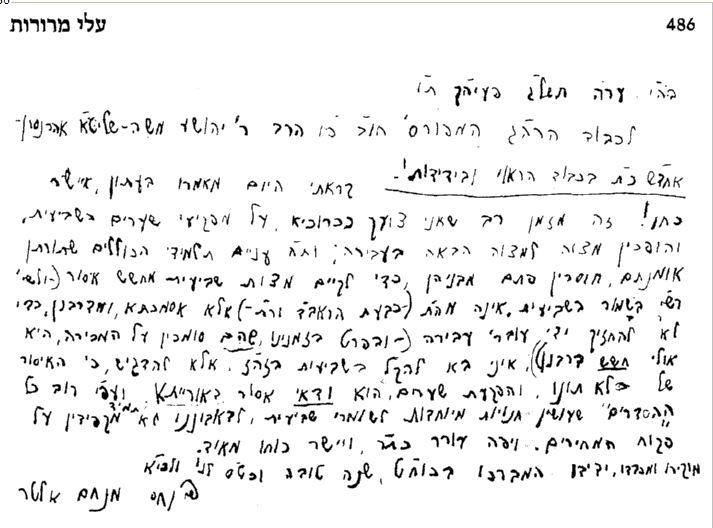 486 עלי מרורות
לכבוד הרה״ג המפורס' חו״ב כו הרב ר' יהושע משה-שליט״א אהרנסון
אחדש כ״ת בכבוד הראוי ובידידות! קראתי היום מאמרו בעתון, אישר
כחו! זה מזמן רב שאני צועק ככרוכיא, על מפקיעי שערים בשביעית,
והופכין מצוה למצוה הבאה בעבירה; ות״ח עניים תלמידי הכוללים שתורתן
אומנתם, חוסרין פתם מבניהן, כדי לקיים מצות שביעית מחשש איסור (-ולשי'
רש״י בשמור בשביעית, אינה מה״ת (-כדעת הראב״ד ור״ת-) אלא אסמכתא, ומדרבנן, כדי
לא להחזיק ידי עוברי עבירה (-ובפרט בזמנינו, שהם סומכין על המכירה, היא
אולי חשש דרבנן), איני בא להקל בשביעית בזה״ז, אלא להדגיש, כי האיסור
של בלא תונו, והפקעת שערים, הוא ודאי אסור באורייתא. ועפ״י רוב כל
ההסדרים" שעושין חנויות מיוחדות לשומרי שביעית, לדאבוננו לא תמיד מקפידין על
פקוח המחירים. ויפה עורר כת״ר, ויישר כוחו מאוד.
מוקירו ומכבדו, ידידו המברכו בכוח״ט, שנה טובה
פינחס מנחם אלטר